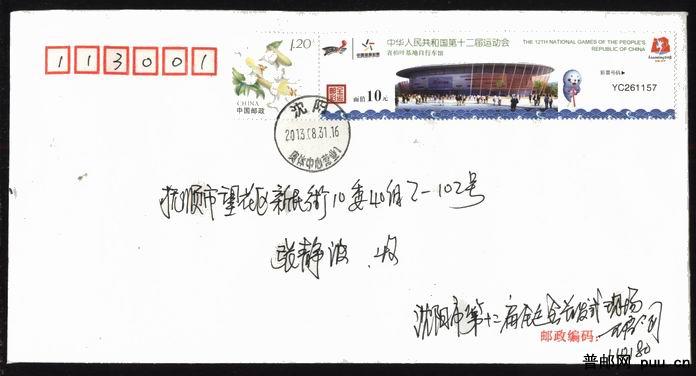 113001
1.20
CHINA
中国邮政
中华人民共和国第十二届运动会
THE 12TH NATIONAL GAMES OF THE PEOPLE'S
REPUBLIC OF CHINA
自行车馆
面值10元
彩票号码
YC261157
沈阳
2013.08.31.16
抚顺市望花区新民街10委40组2-102号
张静波 收
沈阳市第十二届全运会
邮政编码:
普邮网 puu.cn